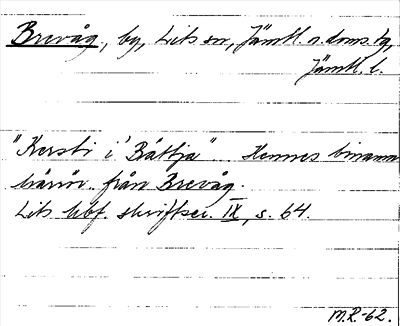 Brevåg, by, Lits sn, Jämtl. n. doms. tg,
Jämtl. l.
"Kersti i Båttja". Hennes binamn
härrör från Brevåg.
Lits hbf. skriftser. IX, s. 64.
M.R.-62.